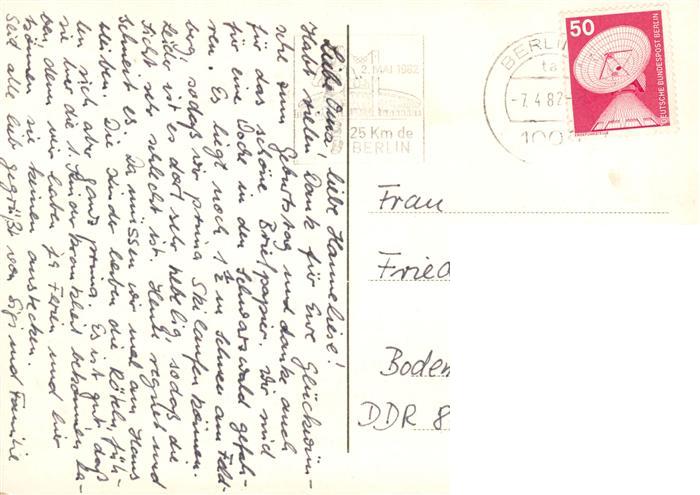 Liebe Omi, liebe Hanneliese!
Habt vielen Dank für Eure Glückwün-
sche zum Geburtstag und danke auch
für das schöne Briefpapier. Wir sind
für eine Woche in den Schwarzwald gefah-
ren. Es liegt noch 1 1/2 m Schnee am Feld-
berg, sodaß wir prima Skilaufen können.
Leider ist es dort sehr nebelig, sodaß die
Sicht sehr schlecht ist. Heute regnet und
schneit es. Da müssen wir mal am Haus
bleiben. Die Kinder haben die Röteln, füh-
len sich aber ganz prima. Es ist gut, daß
sie hier die 1. Kinderkrankheit bekommen ha-
ben, denn wir haben ja Ferien und hier
können sie keinen anstecken.
Seid alle lieb gegrüßt von Sigi und Familie
2. MAI 1982
25 Km de
BERLIN
BERLIN
ta
-7.4.82-
1000
50
DEUTSCHE BUNDESPOST BERLIN
Frau
Fried
Boden
DDR 8